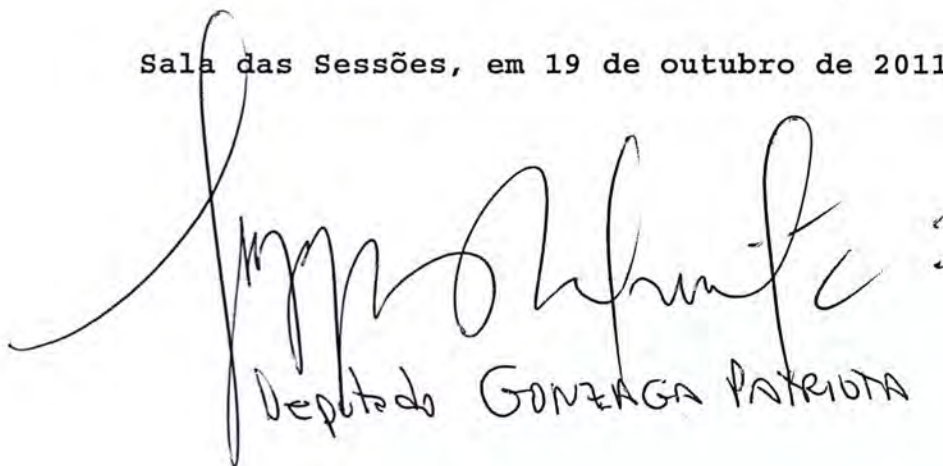 Sala das Sessões, em 19 de outubro de 2011
Deputado GONZAGA PATRIOTA